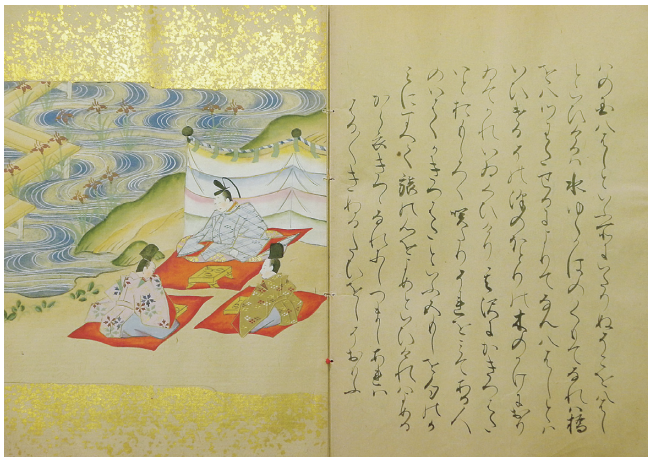 はの国八はしといふ所にいたりぬそこを八はし
といひけるは水ゆく川のくもてなれは橋
を八つわたせるによりてなん八はしとい
ひけるその沢のほとりの木のかけにおり
ゐてかれいゐくひけり其沢にかきつはた
いとおもしろく咲たりそれをみてある人
のいはくかきつはたといふ五もしを句のか
みにすへて旅の心をよめといひけれはよめる
から衣きつゝなれにしつましあれは
はる〳〵きぬるたひをしそおもふ